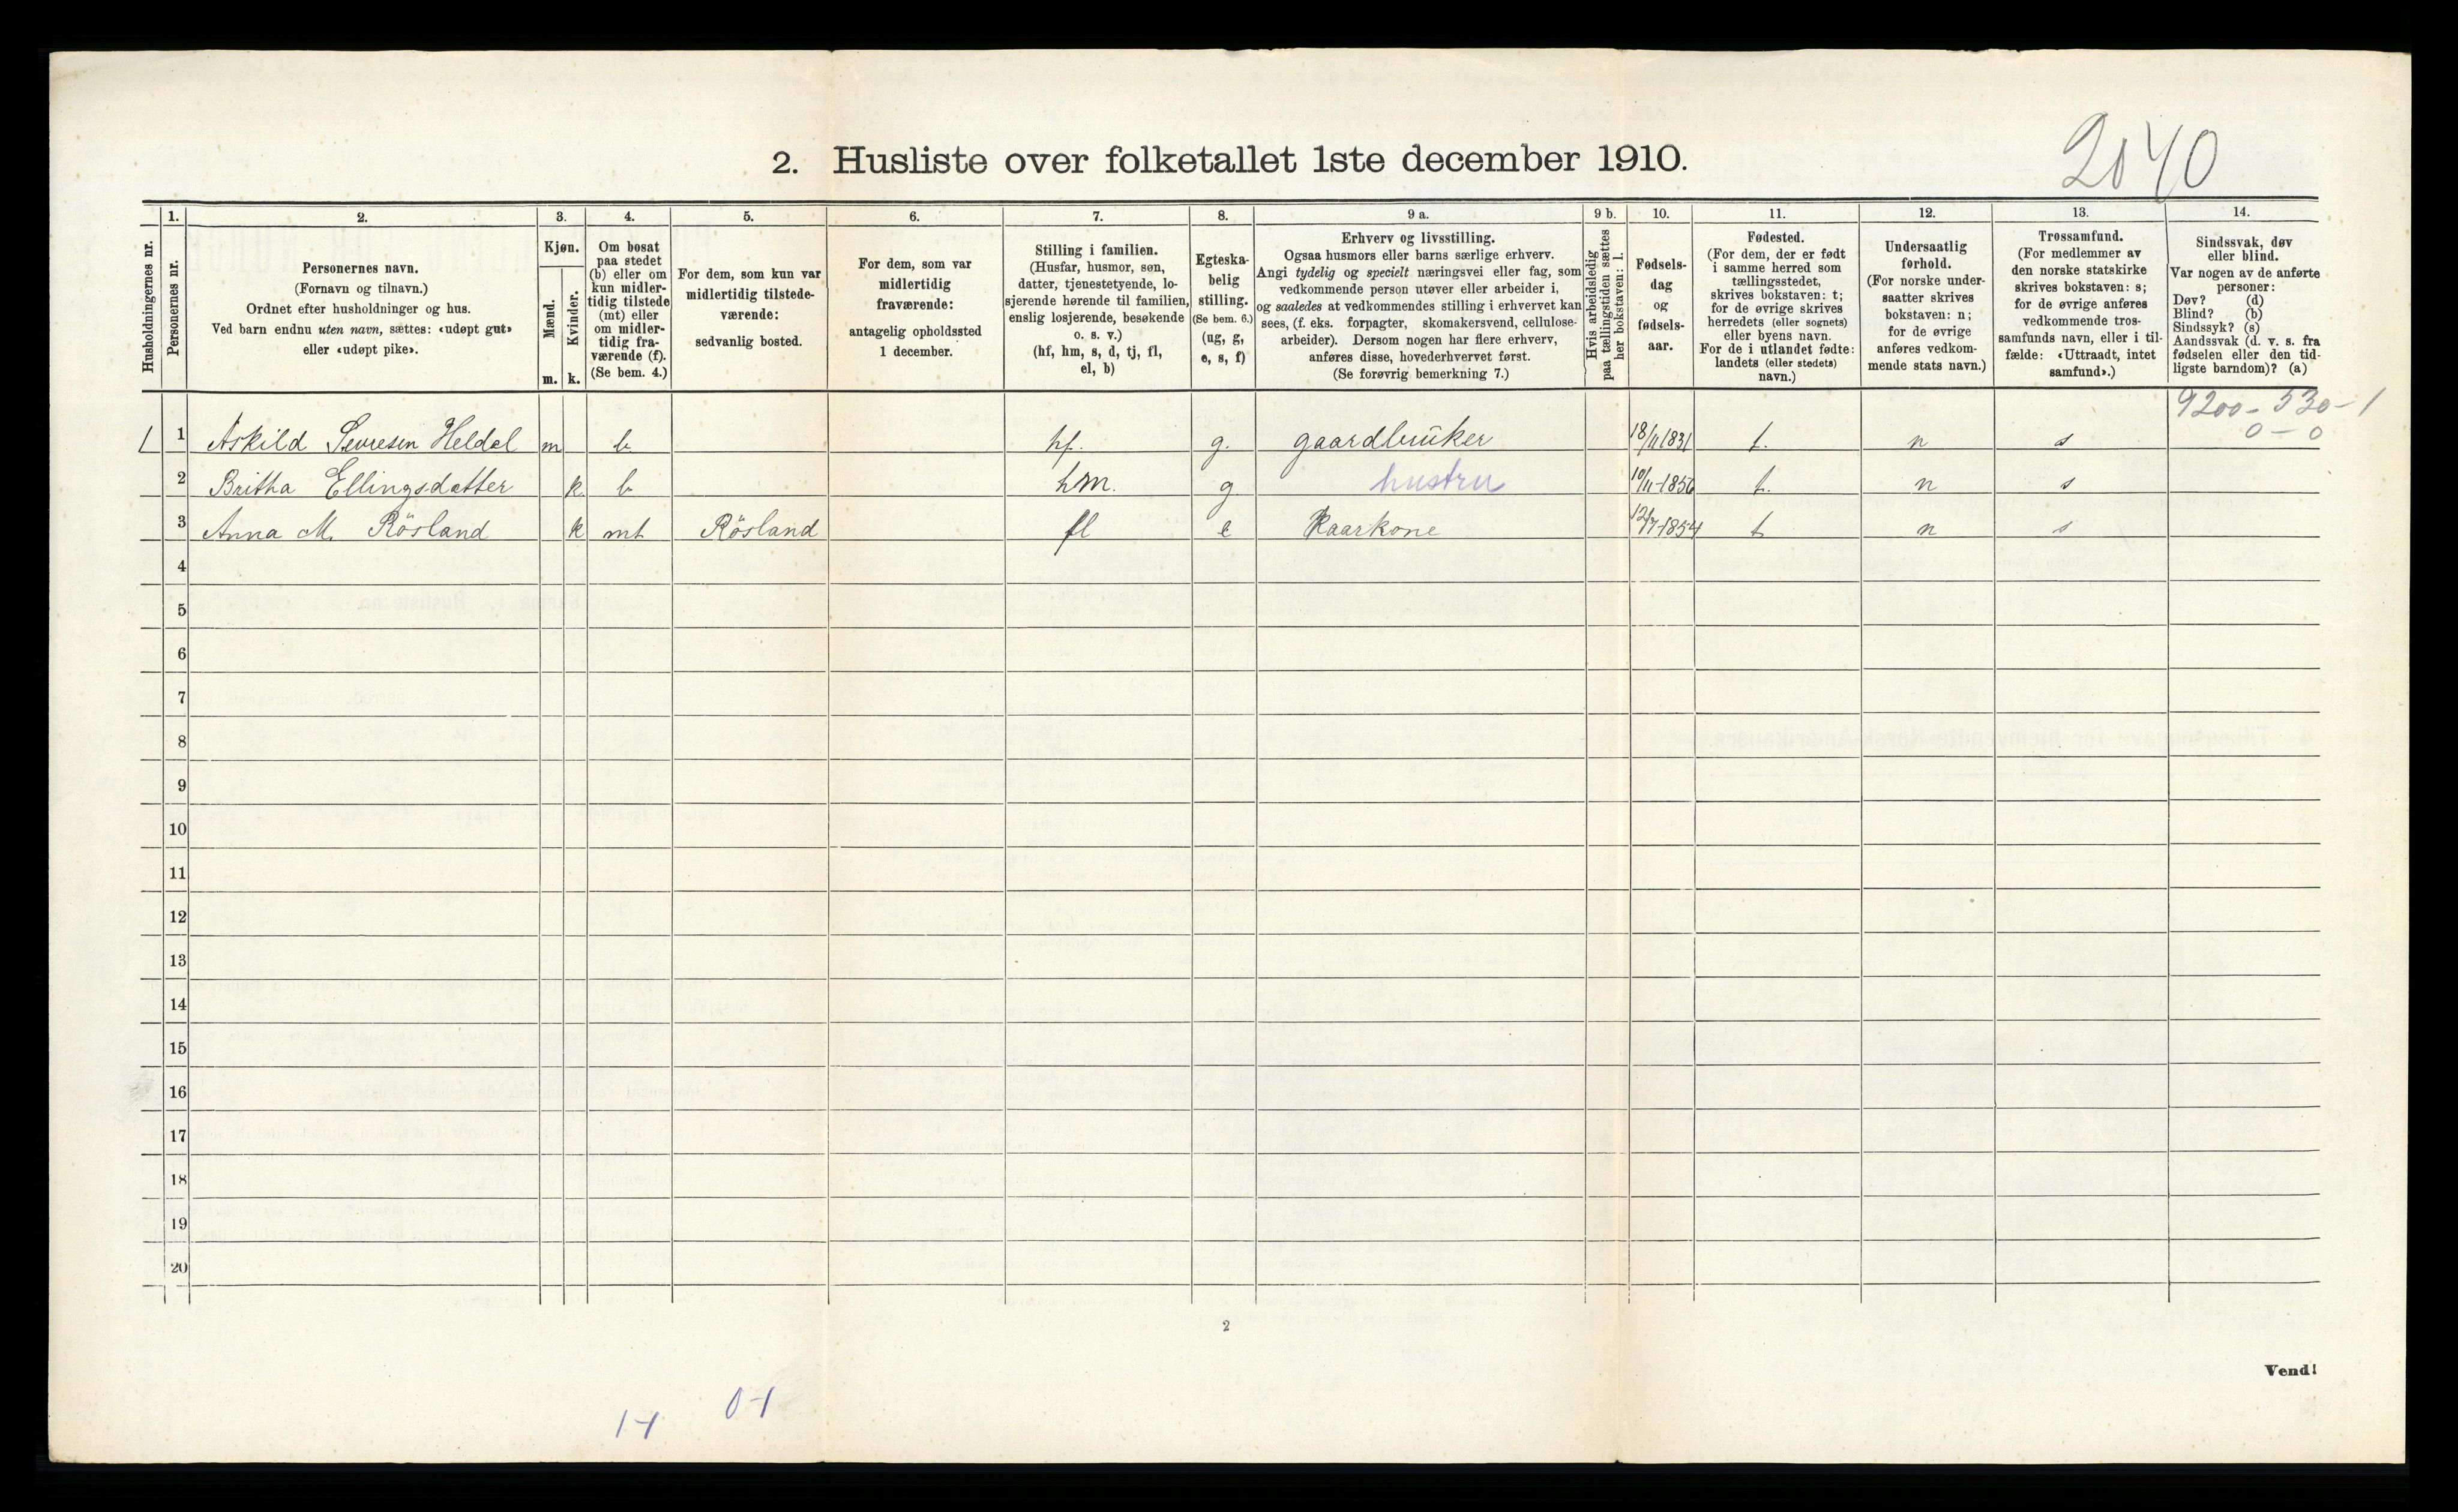 2040
2. Husliste over folketallet 1ste december 1910.
Husholdningernes nr.
1. Personernes nr.
2. Personernes navn.
(Fornavn og tilnavn.)
Ordnet efter husholdninger og hus.
Ved barn endnu uten navn, sættes: «udøpt gut»
eller «udøpt pike».
3. Kjøn.
Mænd. m.
Kvinder. k.
4. Om bosat
paa stedet
(b) eller om
kun midler-
tidig tilstede
(mt) eller
om midler-
tidig fra-
værende (f).
(Se bem. 4.)
5. For dem, som kun var
midlertidig tilstede-
værende:
sedvanlig bosted.
6. For dem, som var
midlertidig
fraværende:
antagelig opholdssted
1 december.
7. Stilling i familien.
(Husfar, husmor, søn,
datter, tjenestetyende, lo-
sjerende hørende til familien,
enslig losjerende, besøkende
o. s. v.)
(hf, hm, s, d, tj, fl,
el, b)
8. Egteska-
belig
stilling.
(Se bem. 6.)
(ug, g,
e, s, f)
9 a. Erhverv og livsstilling.
Ogsaa husmors eller barns særlige erhverv.
Angi tydelig og specielt næringsvei eller fag, som
vedkommende person utøver eller arbeider i,
og saaledes at vedkommendes stilling i erhvervet kan
sees, (f. eks. forpagter, skomakersvend, cellulose-
arbeider). Dersom nogen har flere erhverv,
anføres disse, hovederhvervet først.
(Se forøvrig bemerkning 7.)
9 b. Hvis arbeidsledig
paa tællingstiden sættes
her bokstaven: l.
10. Fødsels-
dag
og
fødsels-
aar.
11. Fødested.
(For dem, der er født
i samme herred som
tællingsstedet,
skrives bokstaven: t;
for de øvrige skrives
herredets (eller sognets)
eller byens navn.
For de i utlandet fødte:
landets (eller stedets)
navn.)
12. Undersaatlig
forhold.
(For norske under-
saatter skrives
bokstaven: n;
for de øvrige
anføres vedkom-
mende stats navn.)
13. Trossamfund.
(For medlemmer av
den norske statskirke
skrives bokstaven: s;
for de øvrige anføres
vedkommende tros-
samfunds navn, eller i til-
fælde: «Uttraadt, intet
samfund».)
14. Sindssvak, døv
eller blind.
Var nogen av de anførte
personer:
Døv? (d)
Blind? (b)
Sindssyk? (s)
Aandssvak (d. v. s. fra
fødselen eller den tid-
ligste barndom)? (a)
9200 - 530 - 1
0 - 0
1 1 Askild Sevresen Heldal m b hf. g. gaardbruker 18/11 1831 t. n s
2 Britha Ellingsdatter k. b hm. g hustru 10/11-1856 t. n s
3 Anna M. Rösland k mt Rösland fl e Kaarkone 12/7-1854 t n s
4
5
6
7
8
9
10
11
12
13
14
15
16
17
18
19
20
2
Vend!
0-1
1-1